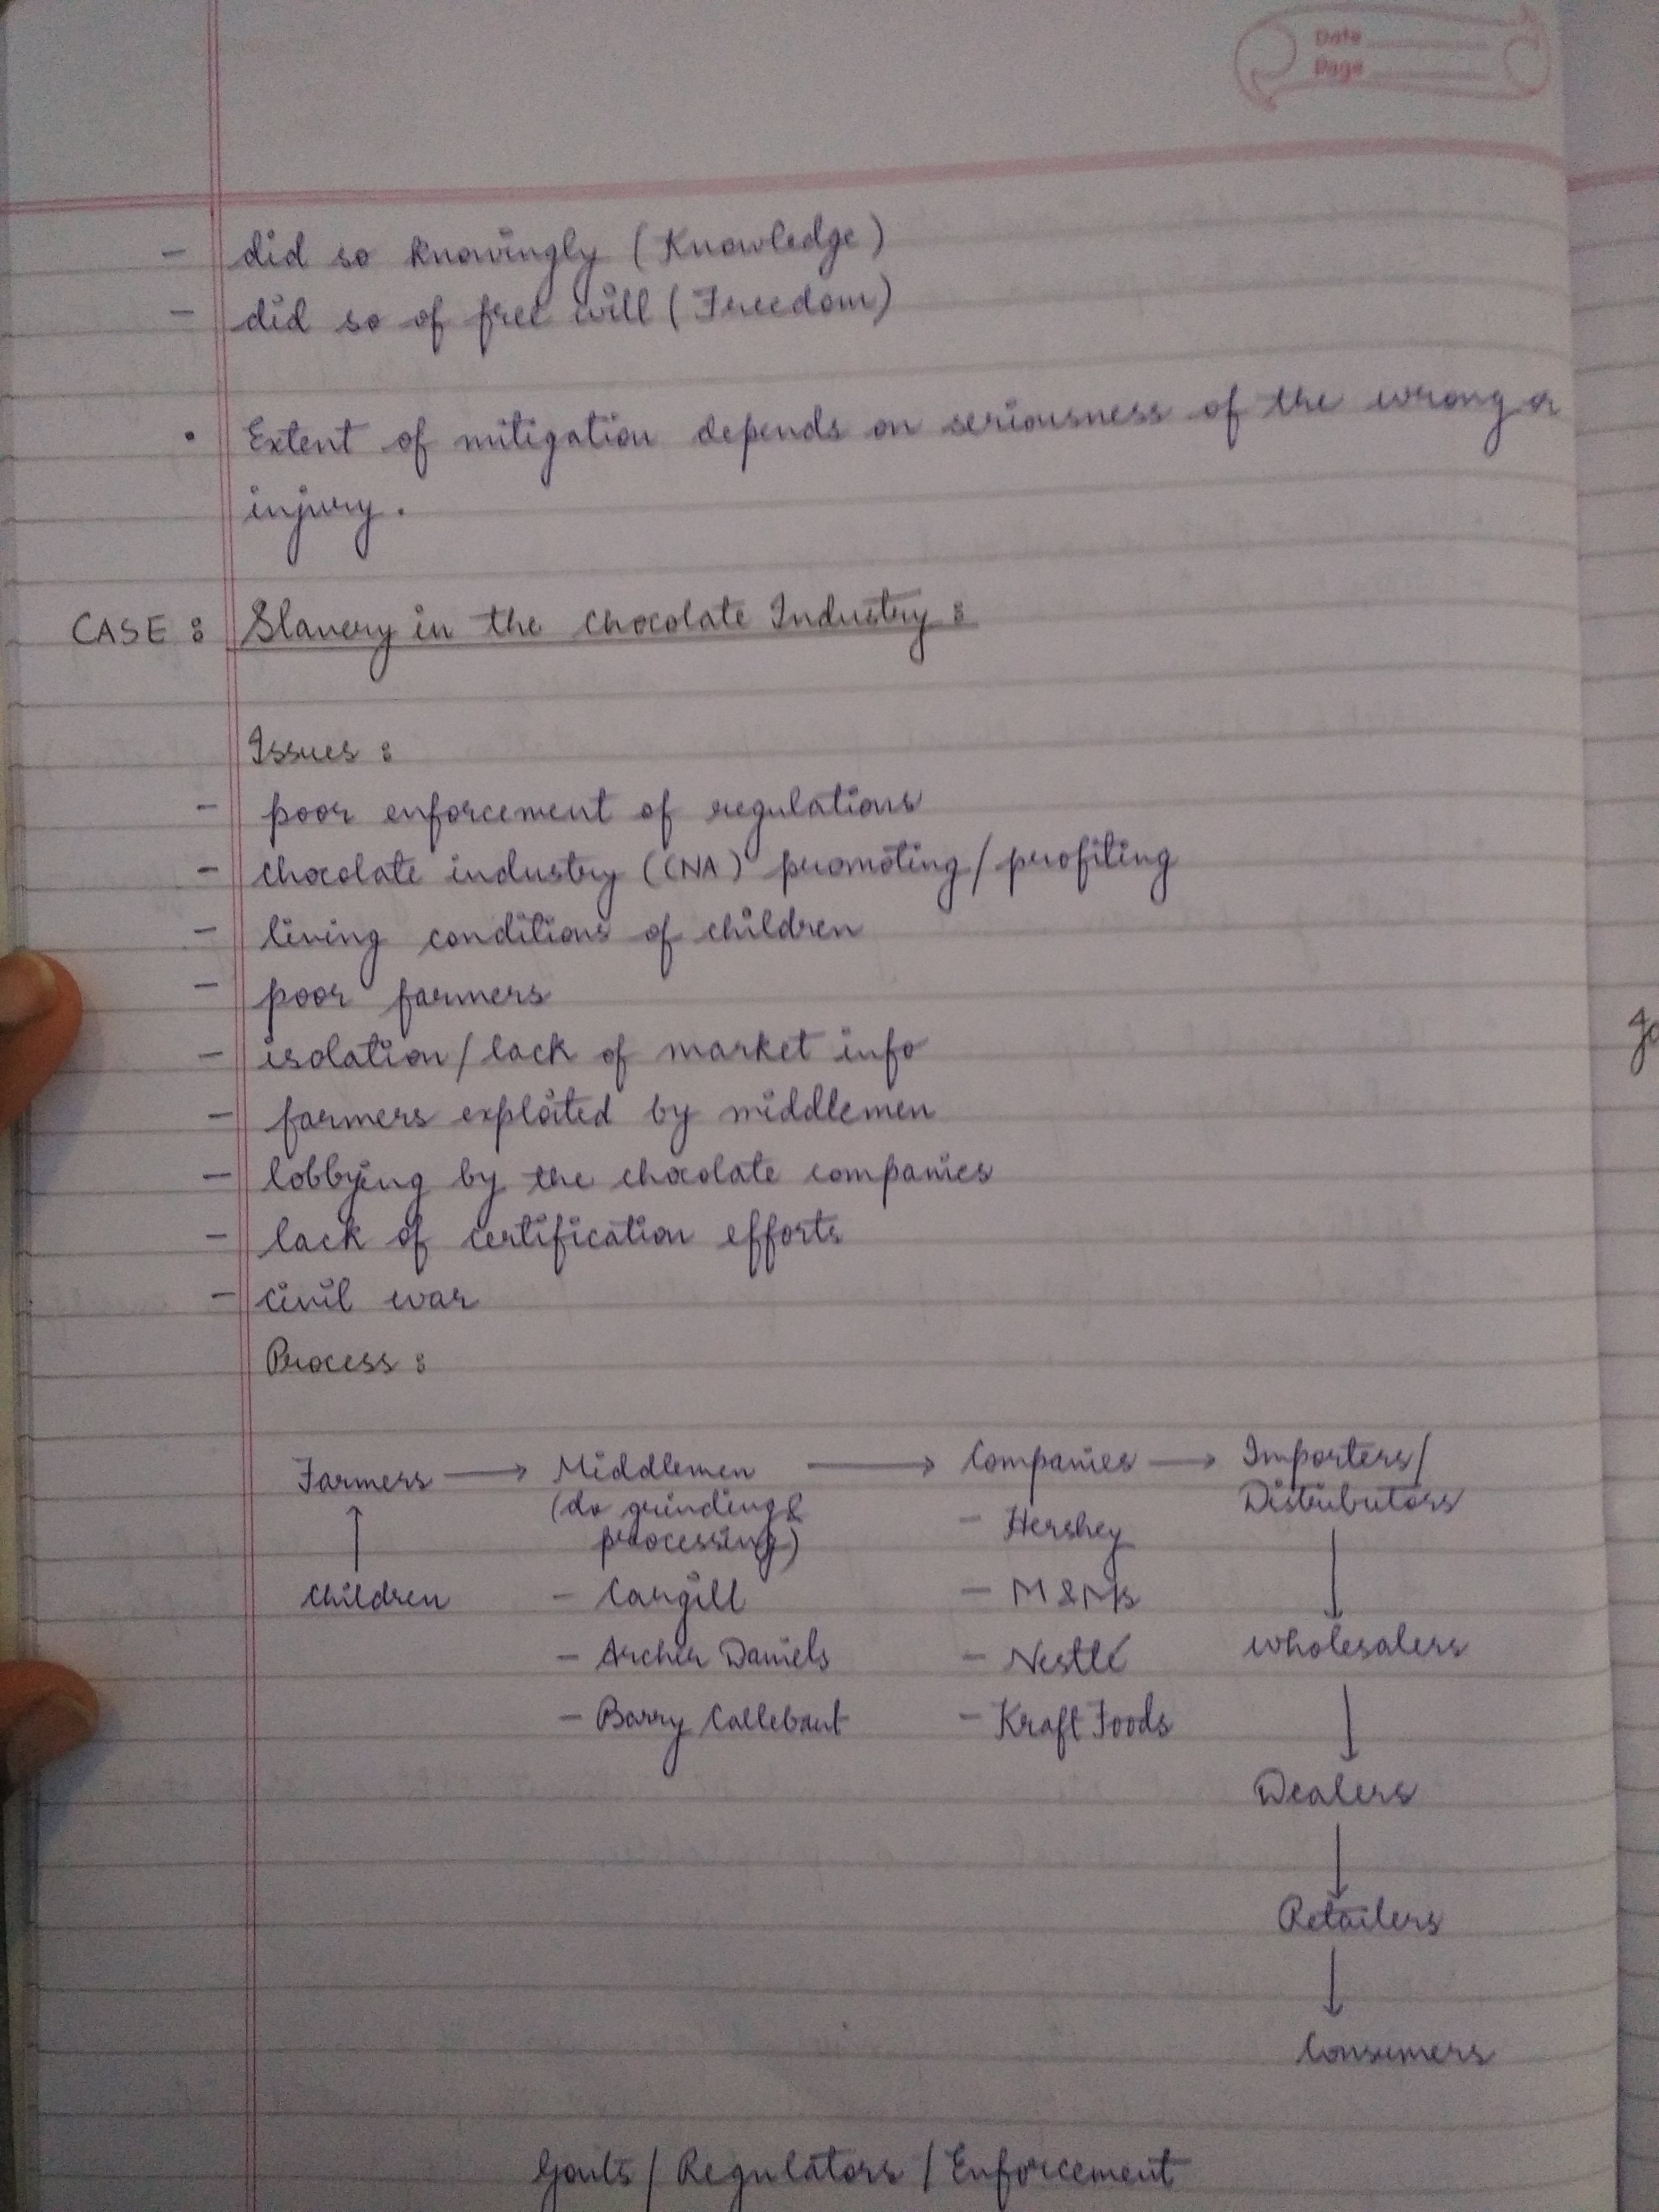 Date
Page
- did so knowingly (Knowledge)
- did so of free will (Freedom)
• Extent of mitigation depends on seriousness of the wrong or
injury.
CASE : Slavery in the chocolate Industry :
Issues :
- poor enforcement of regulations
- chocolate industry (CNA) promoting/profiting
- living conditions of children
- poor farmers
- isolation/lack of market info
- farmers exploited by middlemen
- lobbying by the chocolate companies
- lack of certification efforts
- civil war
Process :
Farmers → Middlemen → Companies → Importers/
(do grinding & Distributors
processing) - Hershey
↑ ↓
children - Cargill - M&Ms
- Archer Daniels - Nestlé wholesalers
- Barry Callebaut - Kraft Foods
↓
Dealers
↓
Retailers
↓
Consumers
Govts / Regulators / Enforcement